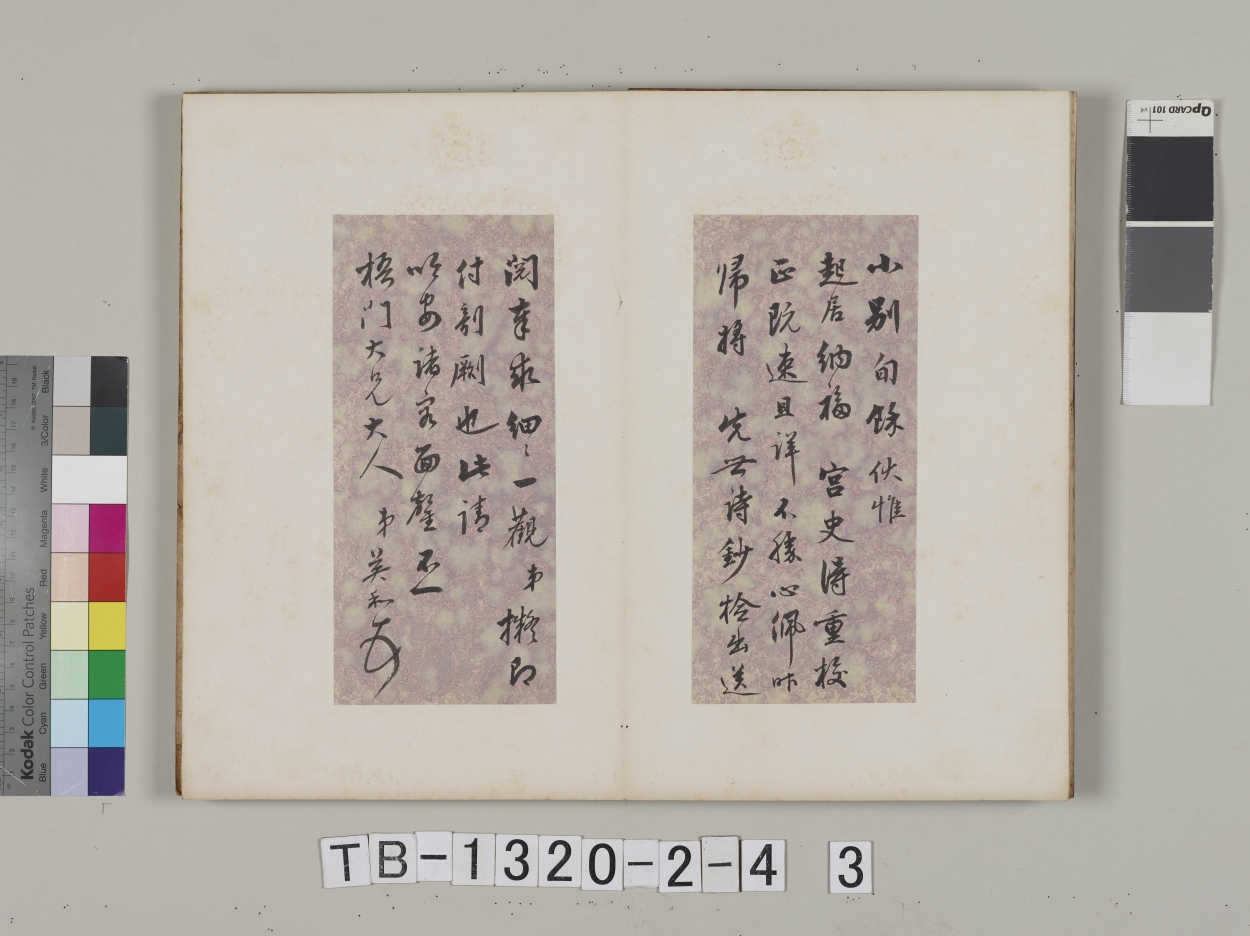 小别旬餘伏惟
起居納福 宫史得重校
正既速且詳不勝心佩昨
帰將 先世詩鈔檢出送
閲幸求細〻一觀弟擬即
付剞劂也此請
以安諸容面罄不一
梧门大兄大人 弟英和
TB-1320-2-4 3
QPCARD 101 v4
Kodak Color Control Patches
Blue Cyan Green Yellow Red Magenta White 3/Color Black